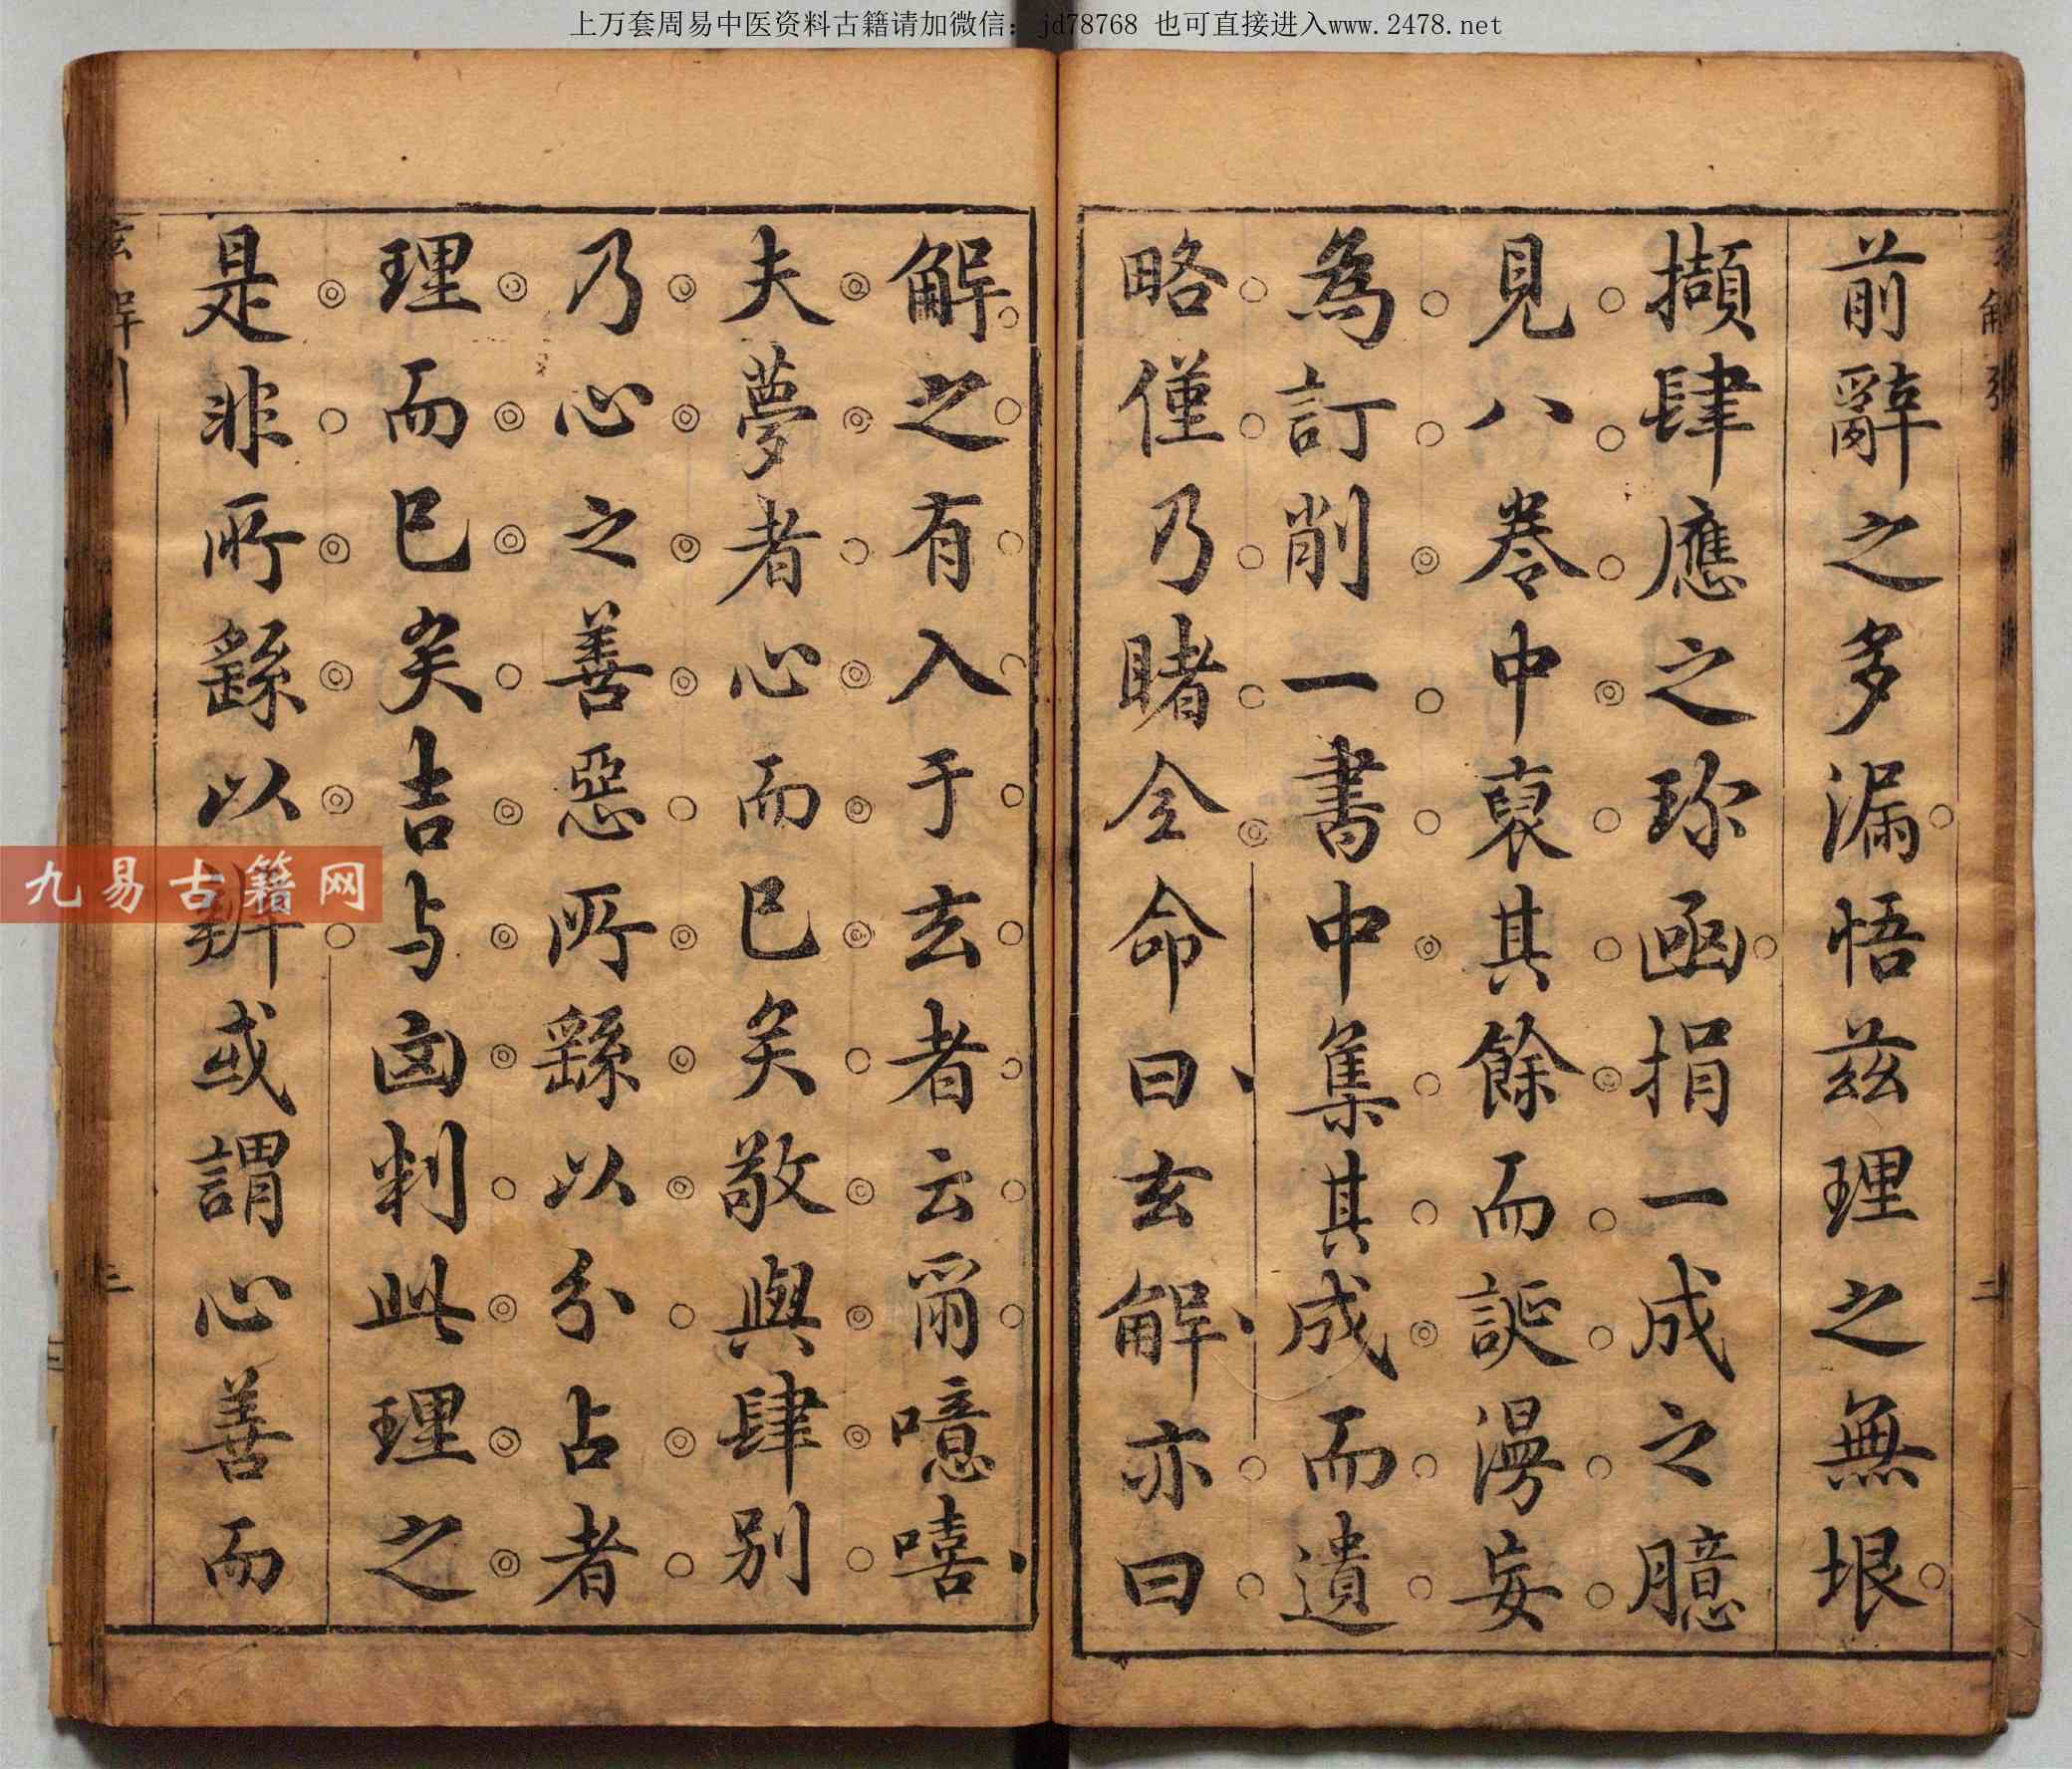 上万套周易中医资料古籍请加微信：jd78768 也可直接进入www.2478.net
前辭之多漏悟兹理之無垠
擷肆應之珎凾捐一成之臆
見八卷中裒其餘而誕漫妄
為訂削一書中集其成而遺
略僅乃睹全命曰玄解亦曰
解之有入于玄者云爾噫嘻
夫夢者心而已矣敬與肆别
乃心之善惡所繇以分占者
理而已矣吉与凶判此理之
是非所繇以辨或謂心善而
玄解引
三
二
九易古籍网